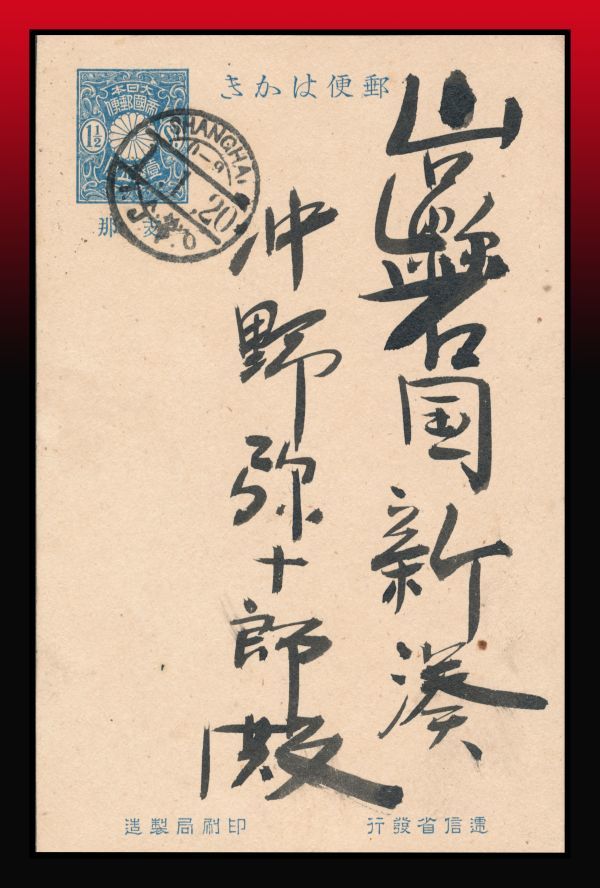 郵便はかき
大日本
帝國郵便
1½ 1½
支那
SHANGHAI
20
山口縣岩国新湊
沖野弥十郎殿
遞信省發行
印刷局製造